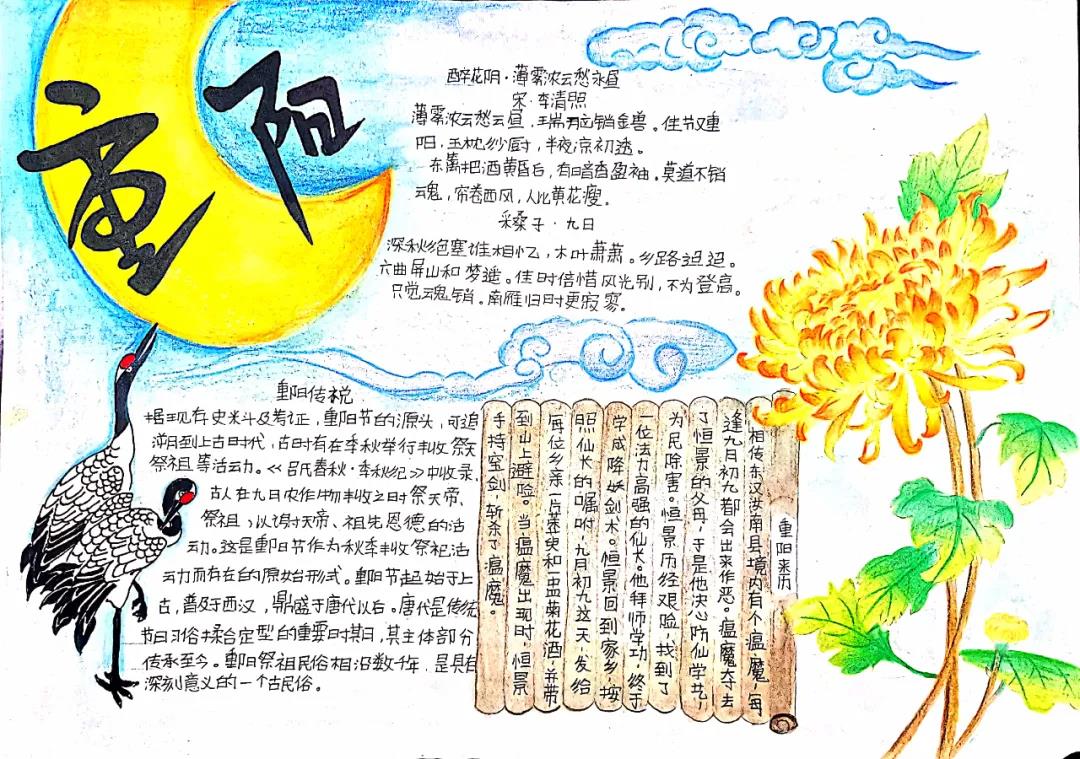 重阳
醉花阴·薄雾浓云愁永昼
宋·李清照
薄雾浓云愁云昼，瑞脑销金兽。佳节又重
阳，玉枕纱厨，半夜凉初透。
东篱把酒黄昏后，有暗香盈袖。莫道不销
魂，帘卷西风，人比黄花瘦。
采桑子·九日
深秋绝塞谁相忆，木叶萧萧。乡路迢迢。
六曲屏山和梦遥。佳时倍惜风光别，不为登高。
只觉魂销。南雁归时更寂寥。
重阳传说
据现存史料及考证，重阳节的源头，可追
溯到上古时代，古时有在季秋举行丰收祭天
祭祖等活动。《吕氏春秋·季秋纪》中收录，
古人在九日农作物丰收之时祭天帝、
祭祖，以谢天帝、祖先恩德的活
动。这是重阳节作为秋季丰收祭祀活
动而存在的原始形式。重阳节起始于上
古，普及于西汉，鼎盛于唐代以后。唐代是传统
节日习俗揉合定型的重要时期，其主体部分
传承至今。重阳祭祖民俗相沿数千年，是具有
深刻意义的一个古民俗。
重阳来历
相传东汉汝南县境内有个瘟魔，每
逢九日初九都会出来作恶。瘟魔夺去
了恒景的父母，于是他决心访仙学艺，
为民除害。恒景历经艰险，找到了
一位法力高强的仙长。他拜师学功，终于
学成降妖剑术。恒景回到家乡，按
照仙长的嘱咐，九月初九这天，发给
每位乡亲一片茱萸和一盅菊花酒，并带
到山上避险。当瘟魔出现时，恒景
手持宝剑，斩杀了瘟魔。